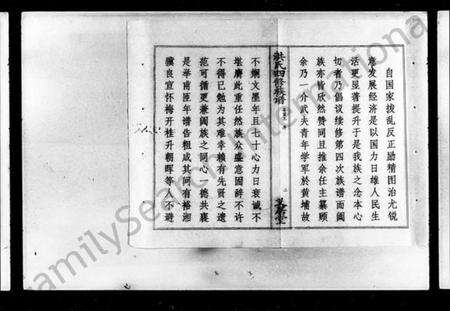 自国家拨乱反正励精图治尤锐
意发展经济是以国力日雄人民生
活更显著提升于是我族之念本心
切者乃倡议续修第四次族谱而阖
族亦皆欣然赞同且推余任主纂顾
余乃一介武夫青年学军於黄埔故
洪氏四修族谱
不娴文墨年且七十心力日衰诚不
堪膺此重任然族众盛意固辞不许
不得已勉为其难幸赖有先晋之遗
范可循更兼阖族之同心一德共襄
是举南匝年谱告粗成其间有裕湘
骥良宣怀梅开桂升朝晖等人不避
FamilySearch International